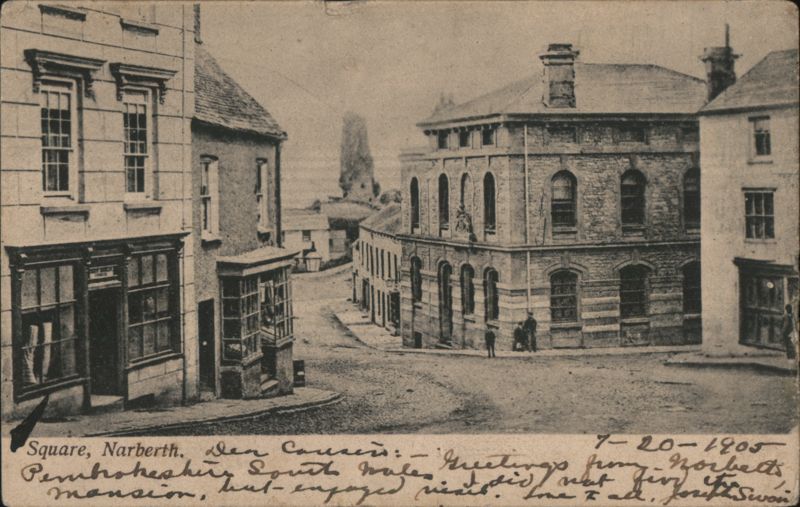 Square, Narberth. Dear Cousin:- 7-20-1905
Pembrokeshire South Wales, - Greetings from Narberth,
mansion, but enjoyed visit. I did not find the
Love to all, Joseph